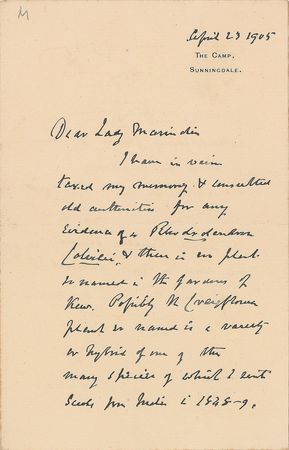 M
April 23 1905
THE CAMP,
SUNNINGDALE.
Dear Lady Marindin
I have in vain
taxed my memory & consulted
old authorities for any
evidence of a Rhododendron
& there is no plant
so named in the Gardens of
Kew. Possibly the
plant so named is a variety
or hybrid of one of the
many species of which I sent
seeds from India in 1848-9.